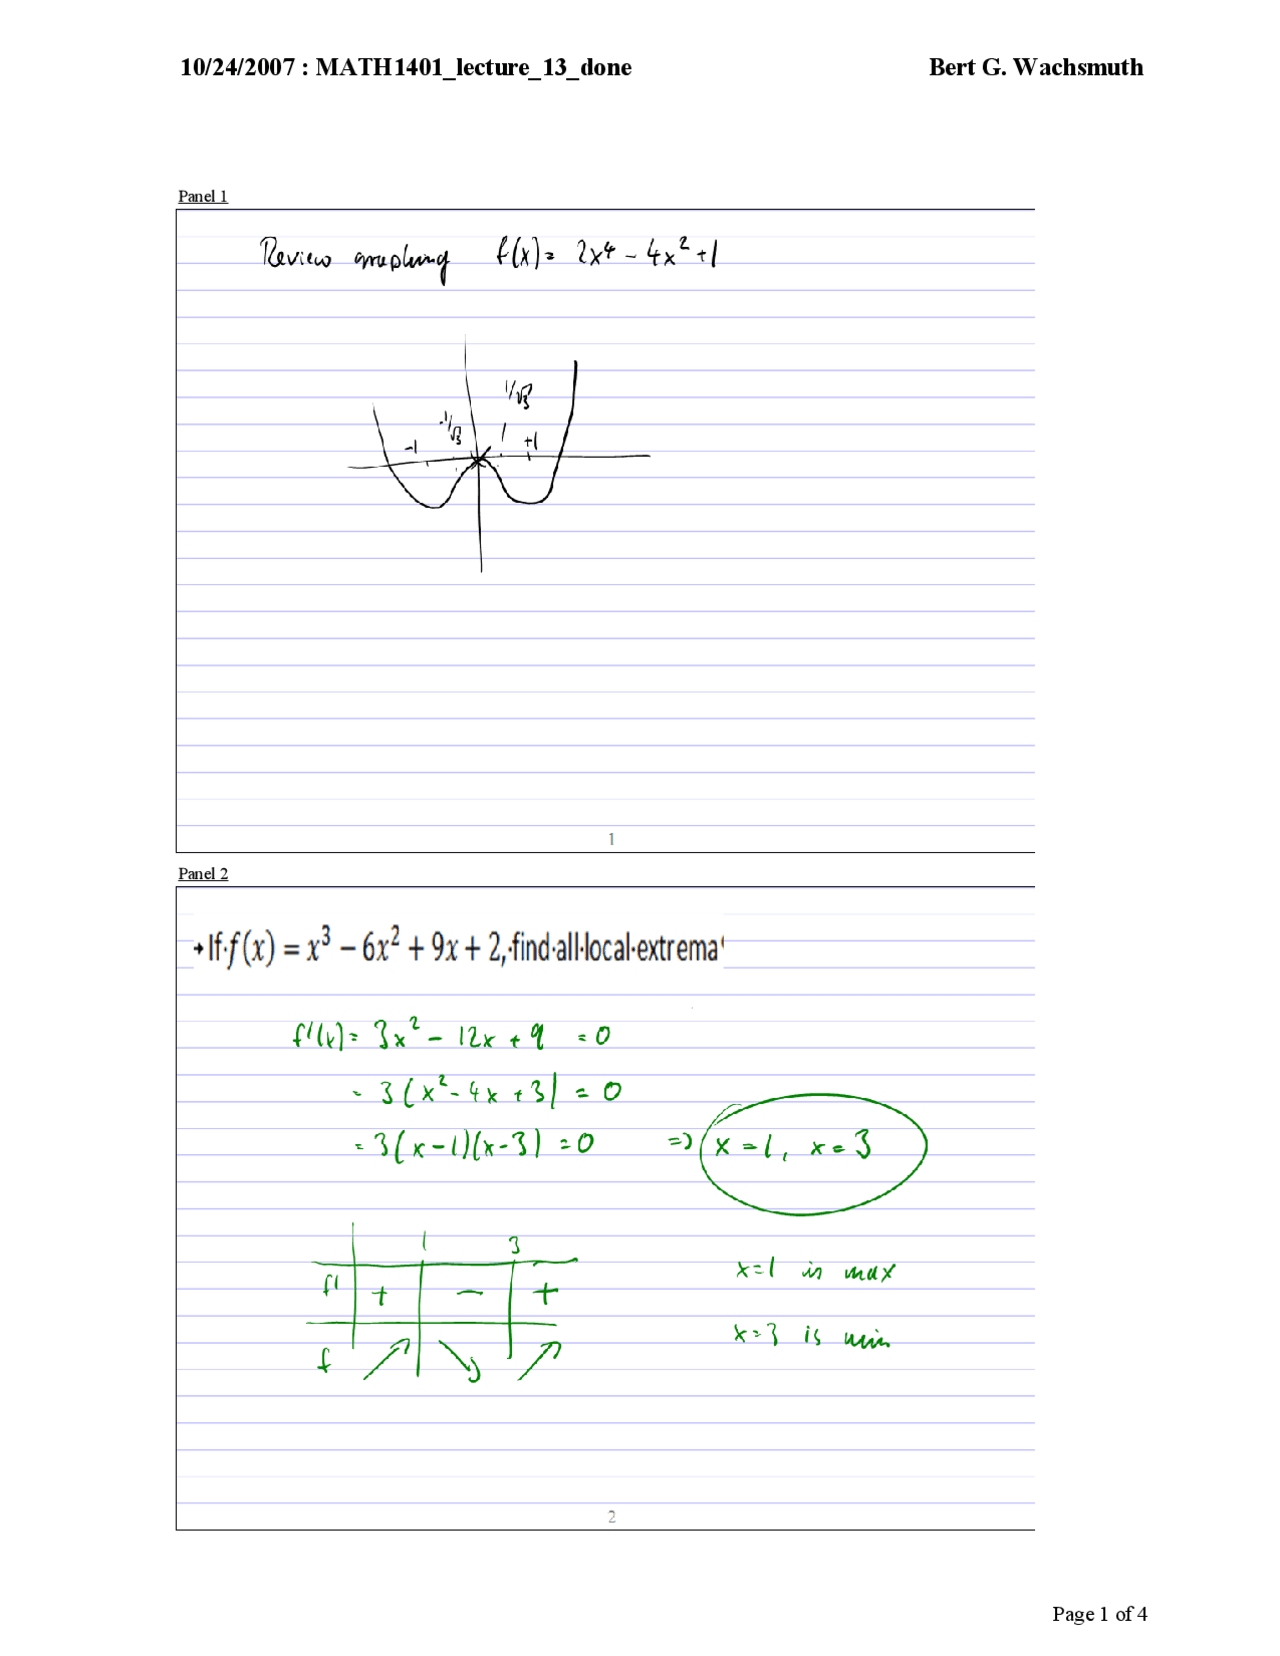 10/24/2007 : MATH1401_lecture_13_done Bert G. Wachsmuth
Panel 1
Review graphing f(x) = 2x⁴ - 4x² + 1
1/√3
-1/√3
-1 +1
1
Panel 2
→If·f(x) = x³ − 6x² + 9x + 2,·find·all·local·extrema
f'(x) = 3x² - 12x + 9 = 0
= 3(x² - 4x + 3) = 0
= 3(x-1)(x-3) = 0 => x = 1, x = 3
1 3
f' + − +
x=1 is max
x=3 is min
f
2
Page 1 of 4